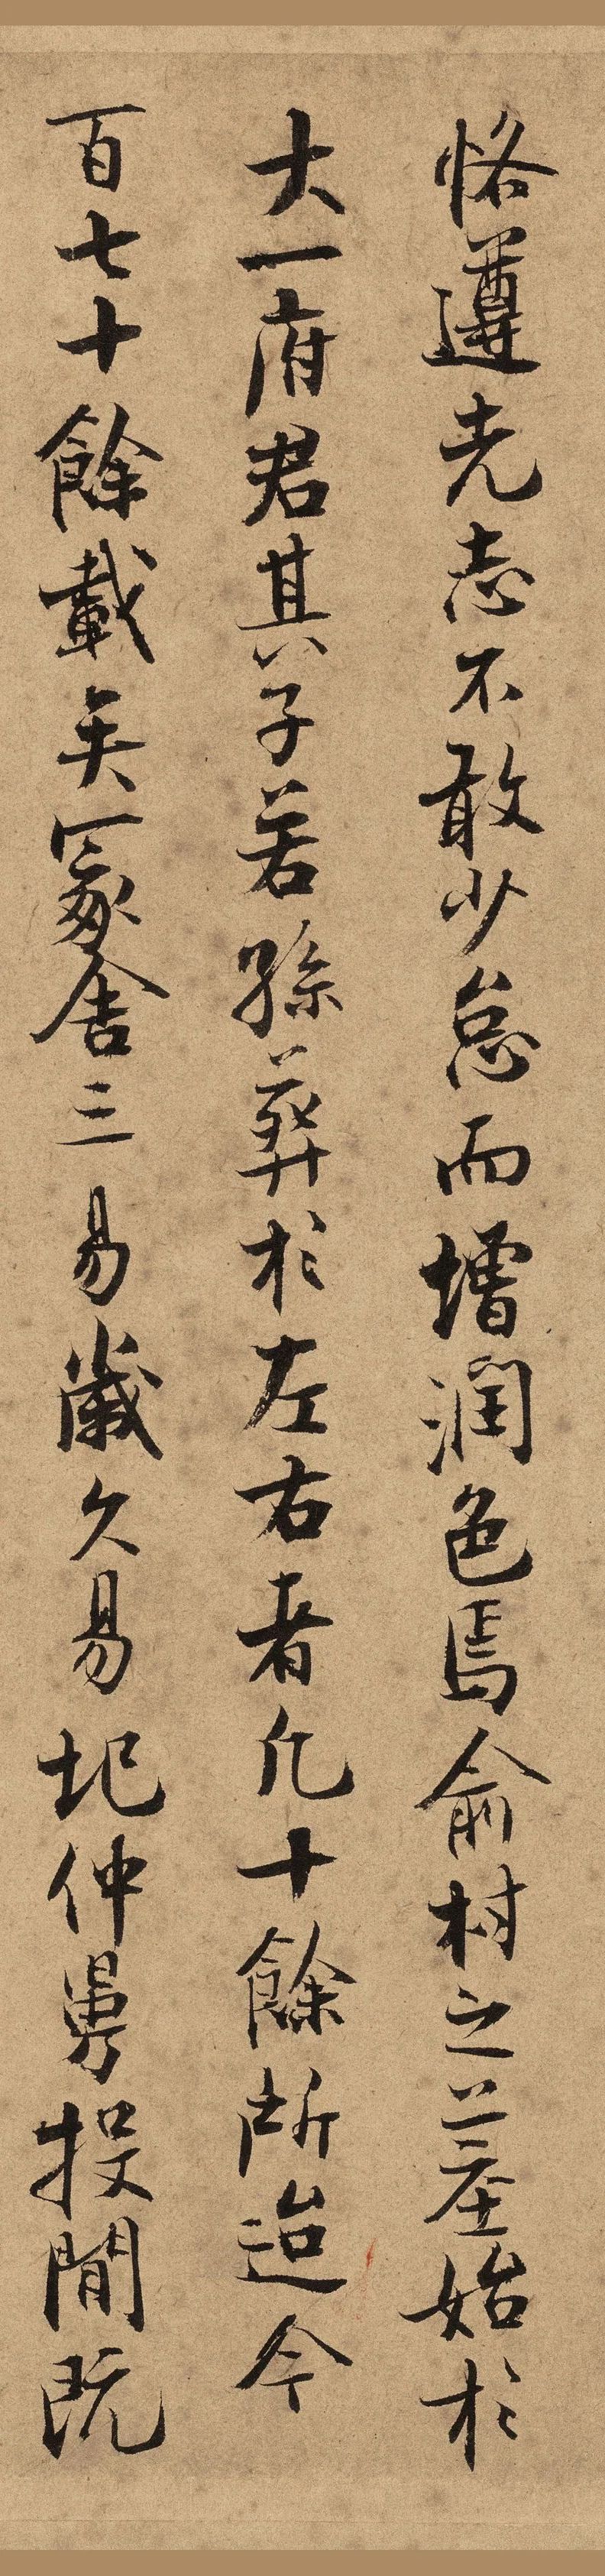 恪遵先志不敢少怠而増潤色焉俞村之墓始於
大一府君其子若孫葬於左右者凡十餘所迨今
百七十餘載矣冢舍三易歲久易圮仲勇投閒既